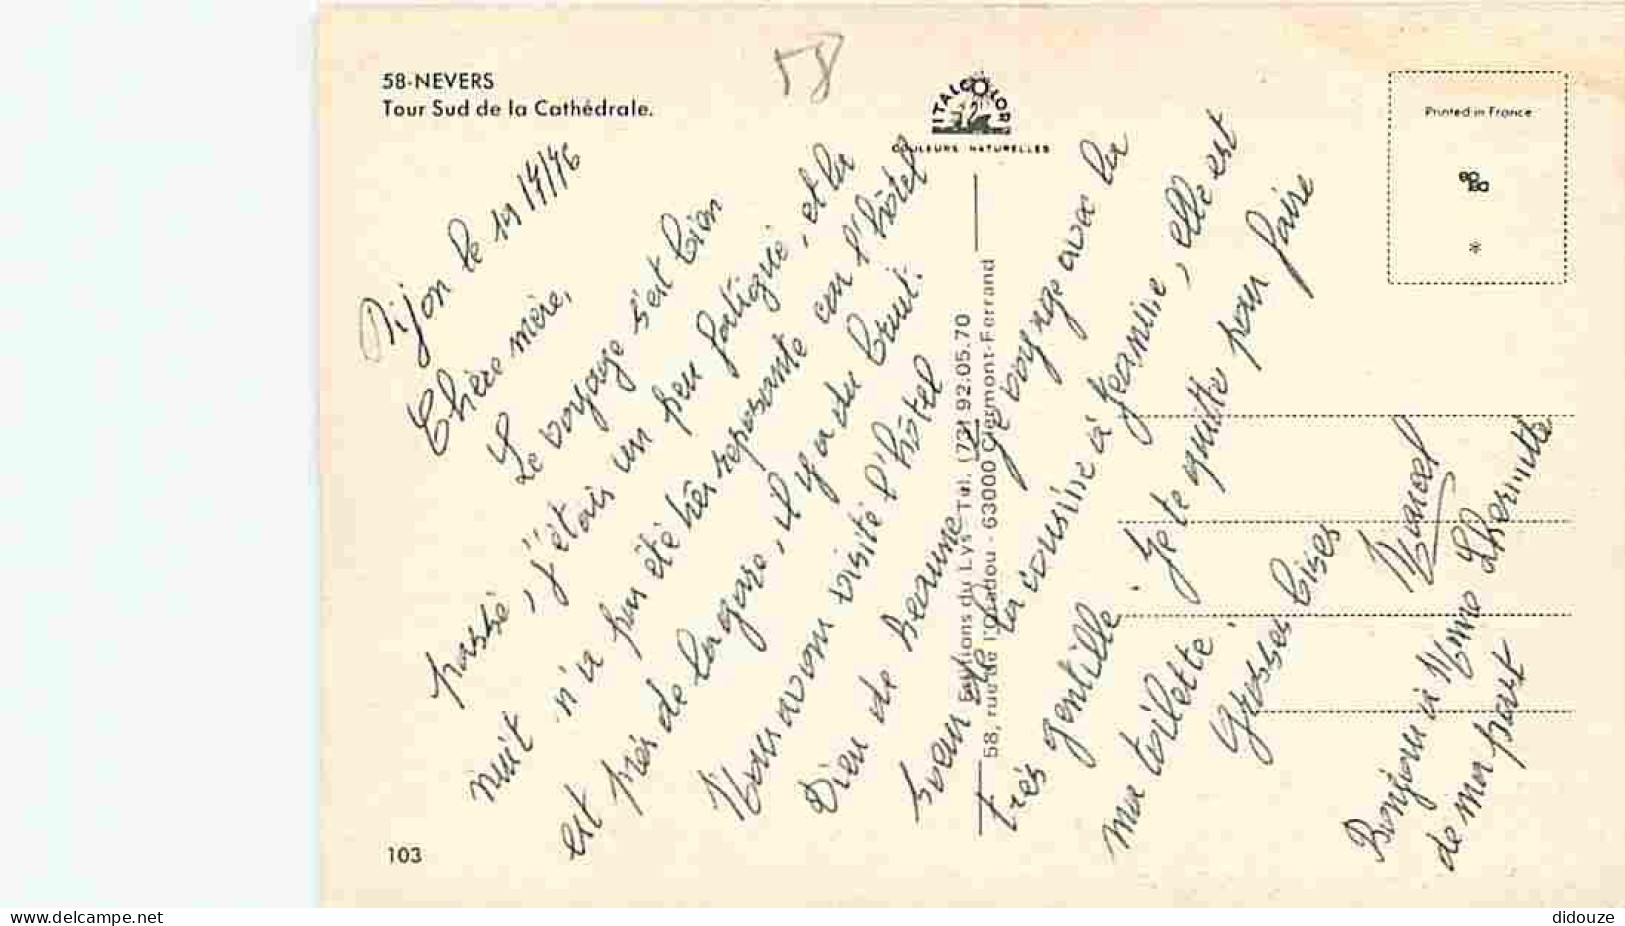 58-NEVERS
Tour Sud de la Cathédrale.
58
ITALCOLOR
COULEURS NATURELLES
Printed in France
*
Dijon le 19/4/76
Chère mère,
Le voyage s'est bien
passé, j'étais un peu fatigué, et la
nuit n'a pas été très reposante car l'hôtel
est près de la gare, il y a du bruit.
Nous avons visité l'hôtel
Dieu de Beaune. Je voyage avec la
soeur de la cousine à Jeannine, elle est
très gentille. Je te quitte pour faire
ma toilette.
Grosses bises
Marcel
Bonjour à Mme Lhermitte
de ma part
Editions du Lys - Tél. (73) 92.05.70
58, rue de l'Oradou - 63000 Clermont-Ferrand
103
www.delcampe.net
didouze